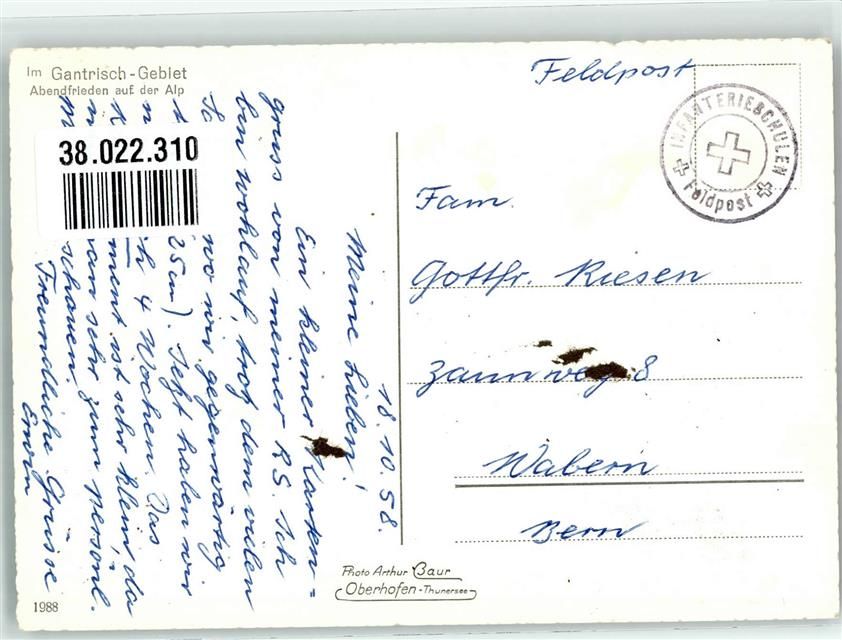 Im Gantrisch-Gebiet
Abendfrieden auf der Alp
38.022.310
18.10.58.
Meine Lieben!
Ein kleiner Karten=
gruss von meiner RS. Ich
bin wohlauf, troz dem vielen
wo wir gegenwärtig
25cm). Jetzt haben wir
4 Wochen. Das
ment ist sehr klein, da
man sehr zum personl.
schauen.
Freundliche Grüsse
Erwin
Feldpost
INFANTERIESCHULEN
Feldpost
Fam.
Gottfr. Riesen
Zaunweg 8
Wabern
Bern
Photo Arthur Baur
Oberhofen-Thunersee
1988